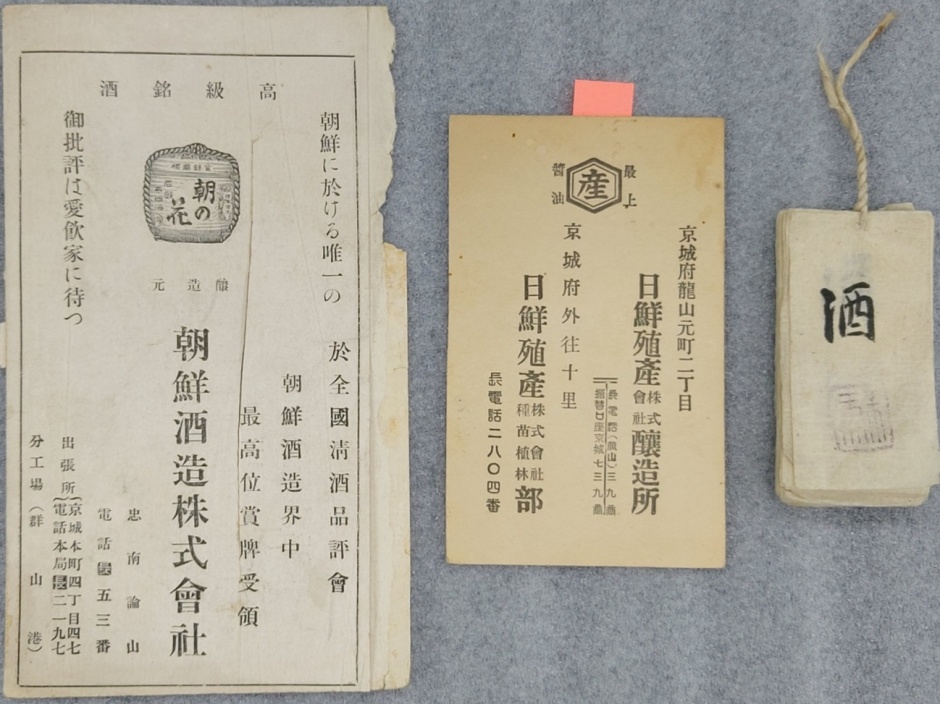 高級銘酒
朝鮮に於ける唯一の
於全國清酒品評會
朝鮮酒造界中
最高位賞牌受領
朝の花
釀造元
朝鮮酒造株式會社
忠南論山
電話長五三番
御批評は愛飮家に待つ
出張所(京城本町四丁目四七
電話本局長二一九七
分工場(群山港)
最上
醬油
産
京城府龍山元町二丁目
日鮮殖產株式會社釀造所
長電話(龍山)三九番
振替口座京城七三九番
京城府外往十里
日鮮殖產株式會社種苗植林部
長電話二八〇四番
酒